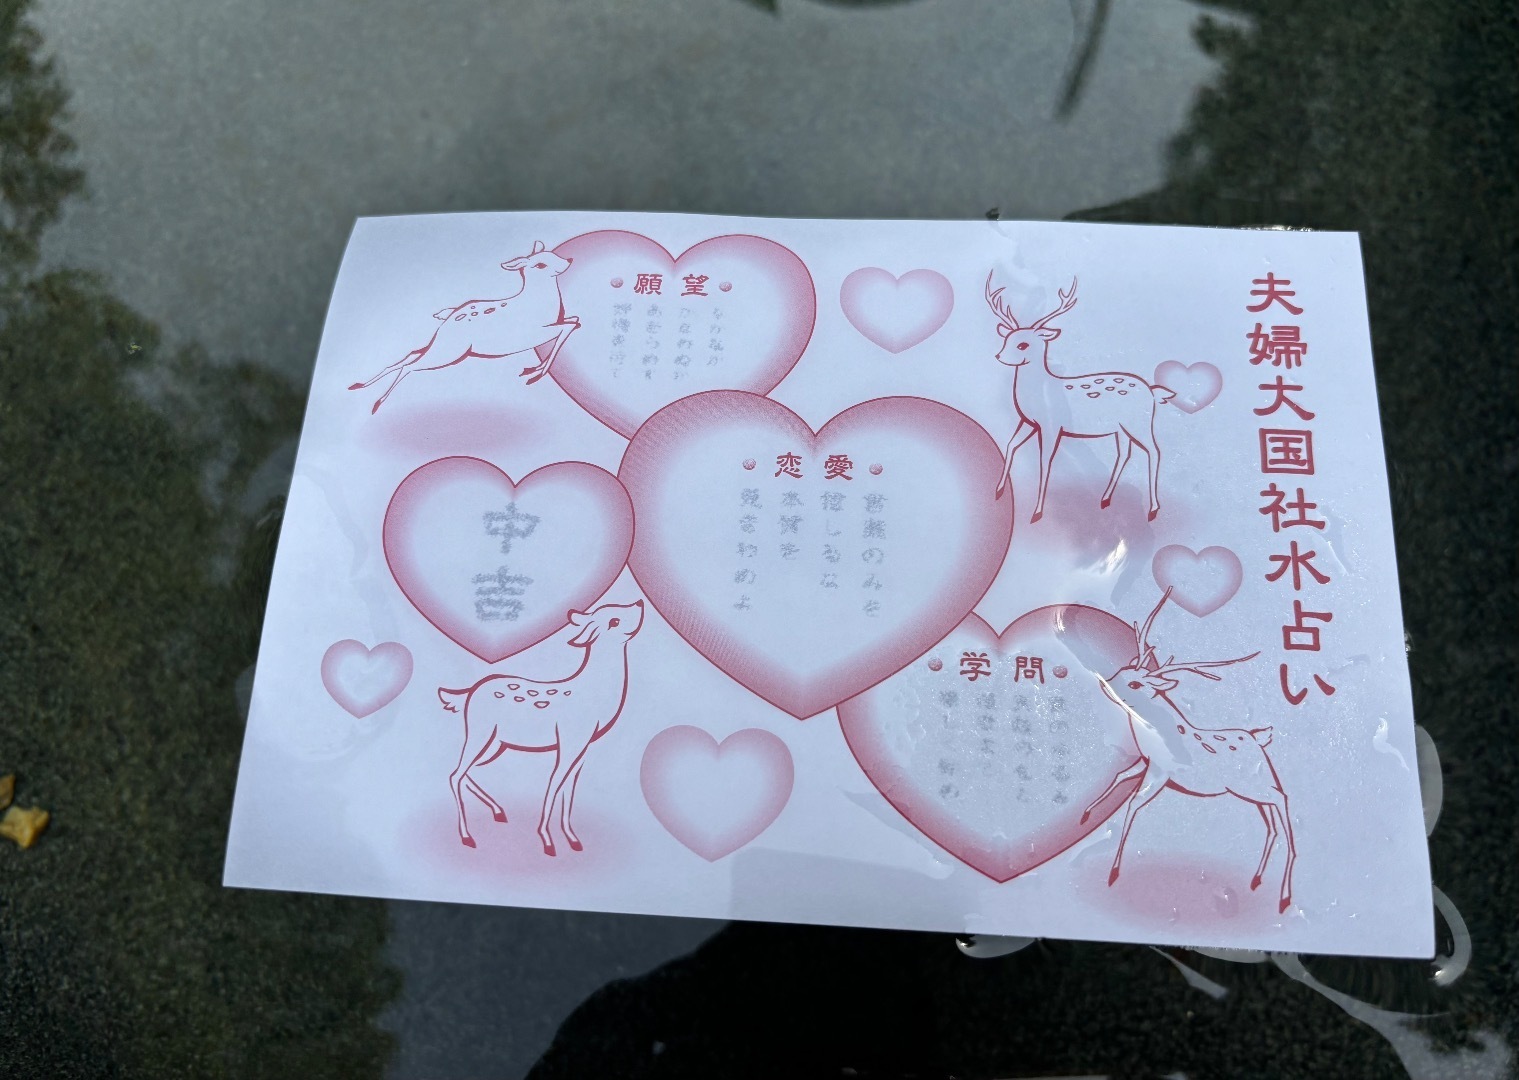 夫婦大国社水占い
願望
なかなか
かなわぬが
あきらめず
好機を待て
恋愛
言葉のみを
信じるな
本質を
見きわめよ
学問
中吉